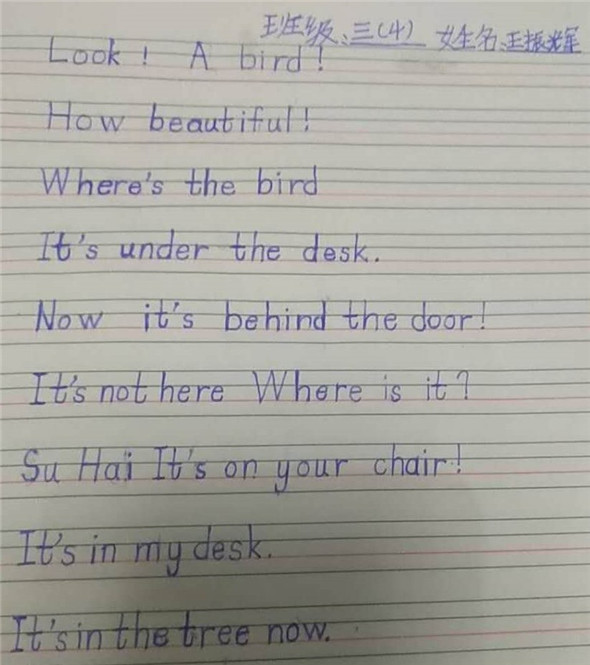 班级、三(4) 姓名、王振辉
Look! A bird!
How beautiful!
Where's the bird
It's under the desk.
Now it's behind the door!
It's not here Where is it?
Su Hai It's on your chair!
It's in my desk.
It's in the tree now.